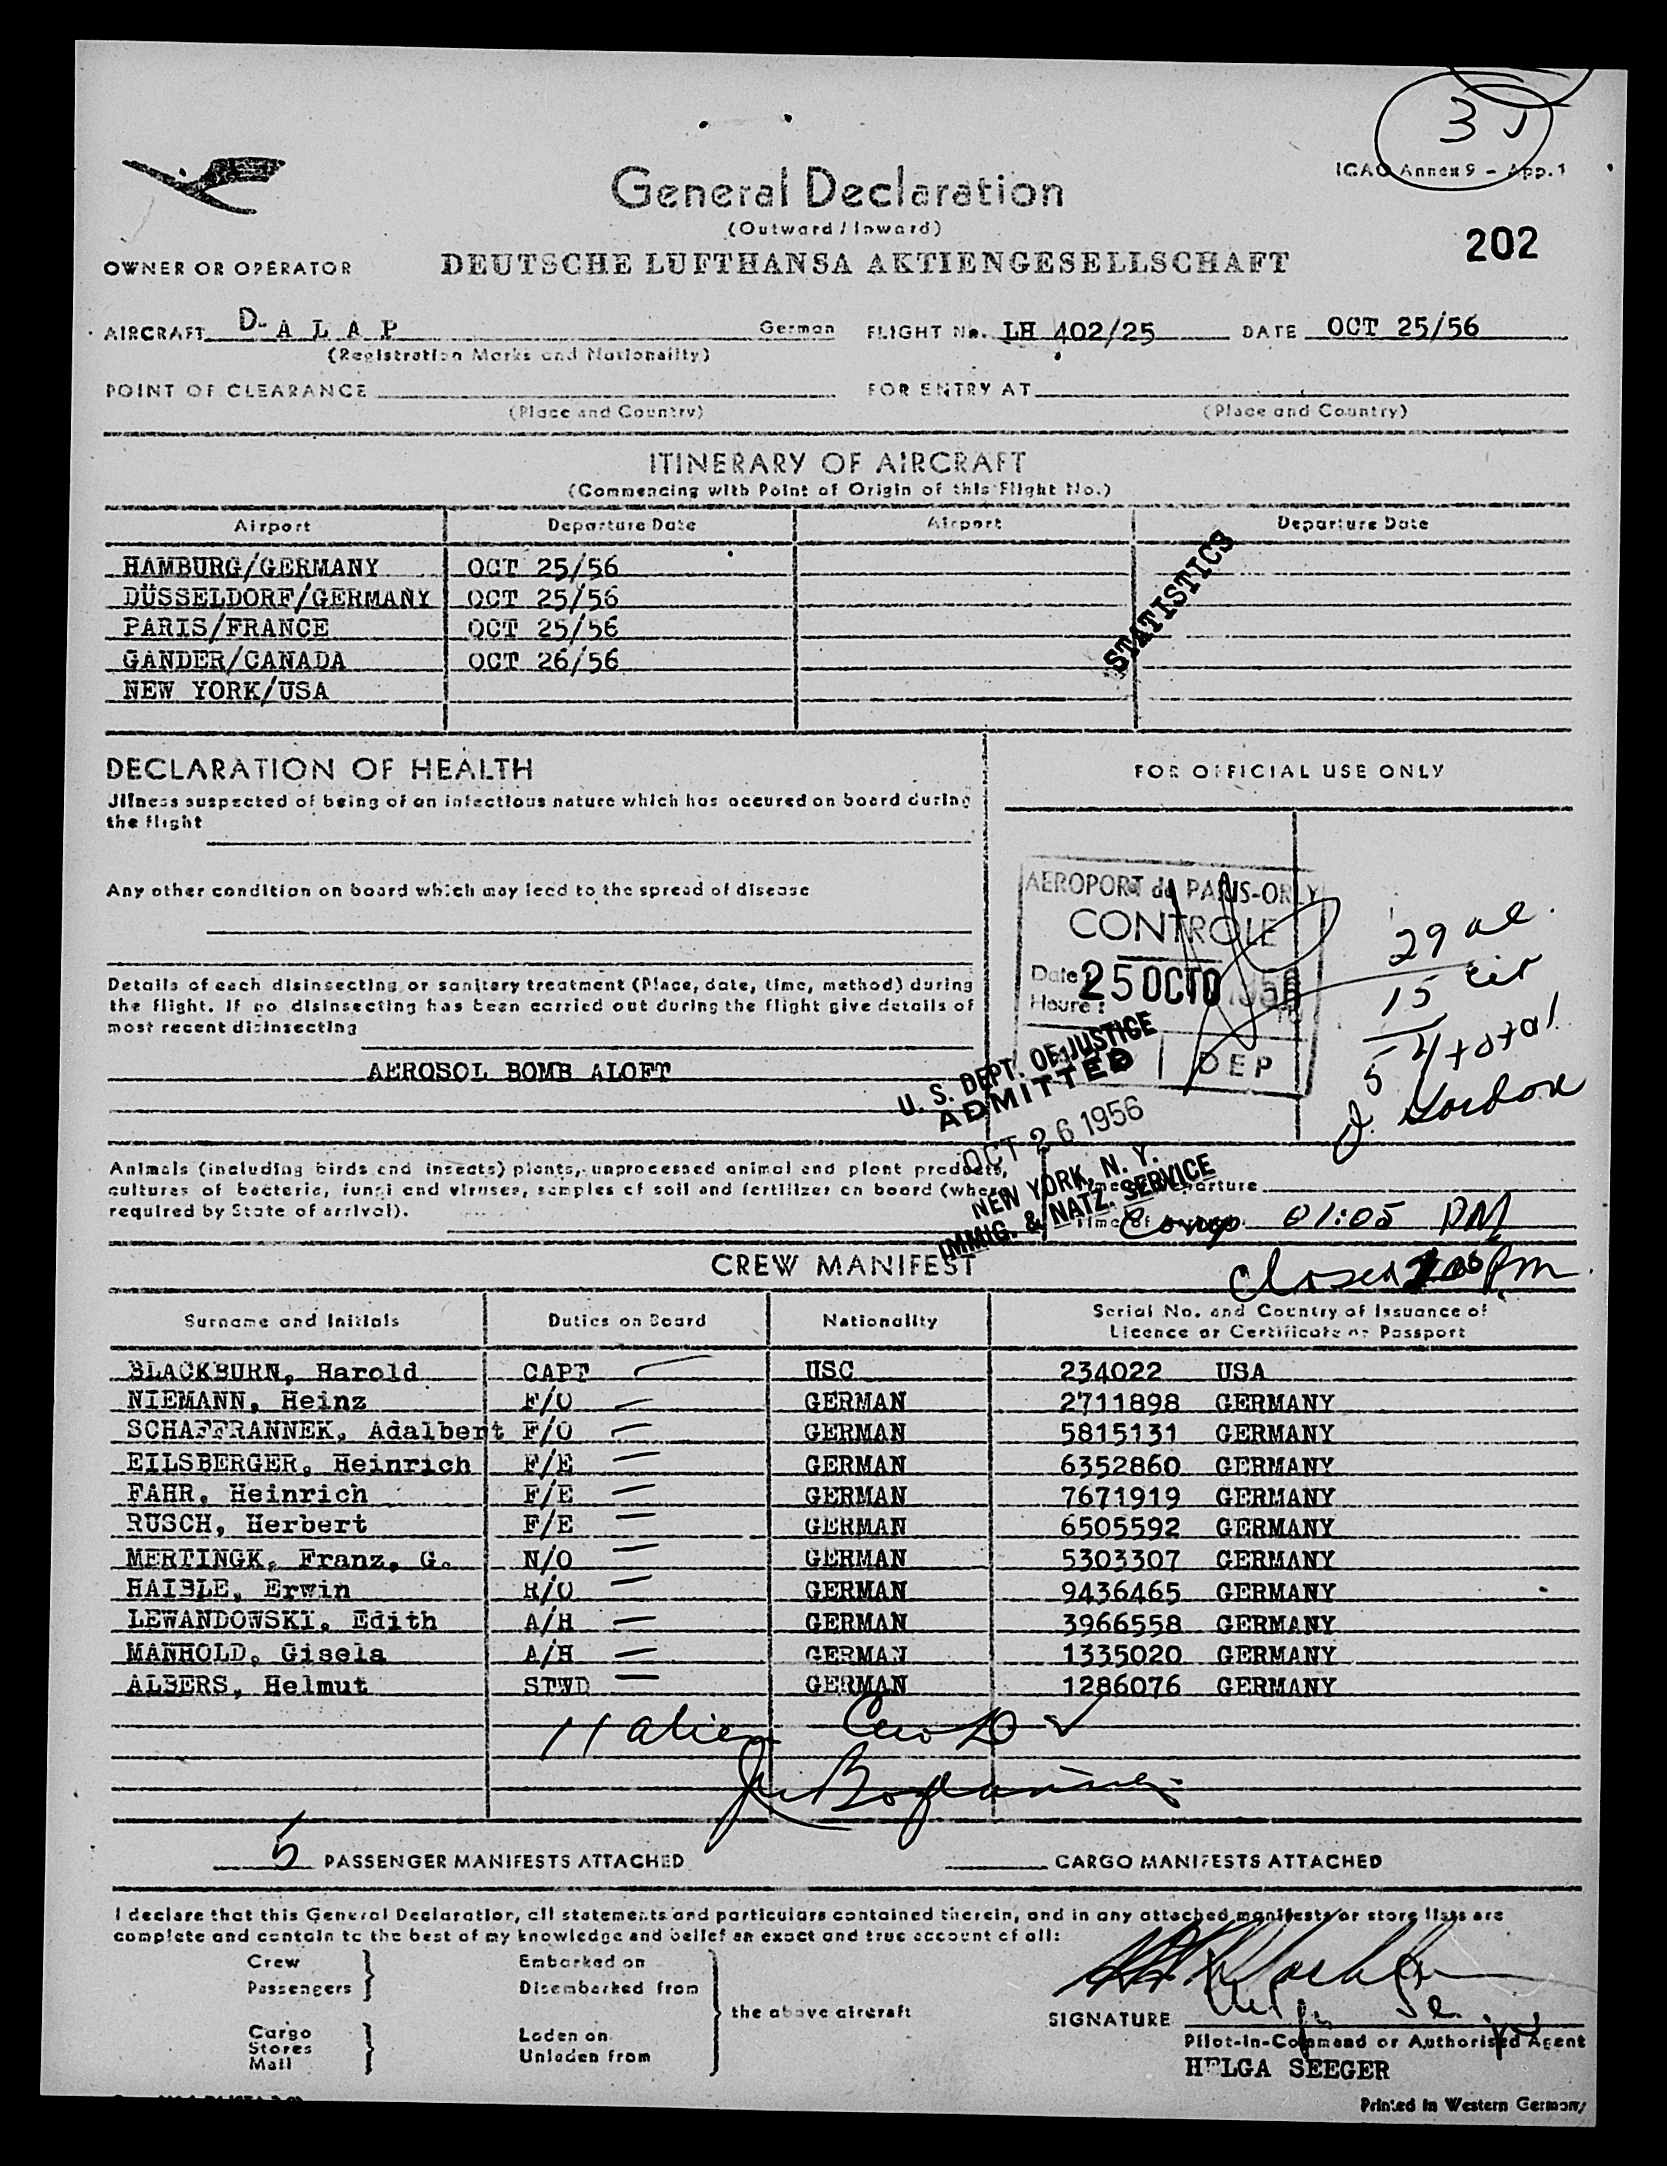 3
ICAO Annex 9 - App. 1
General Declaration
(Outward / Inward)
202
OWNER OR OPERATOR DEUTSCHE LUFTHANSA AKTIENGESELLSCHAFT
AIRCRAFT D-A L A P German FLIGHT No. LH 402/25 DATE OCT 25/56
(Registration Marks and Nationality)
POINT OF CLEARANCE FOR ENTRY AT
(Place and Country) (Place and Country)
ITINERARY OF AIRCRAFT
(Commencing with Point of Origin of this Flight No.)
Airport Departure Date Airport Departure Date
HAMBURG/GERMANY OCT 25/56
DÜSSELDORF/GERMANY OCT 25/56
PARIS/FRANCE OCT 25/56
GANDER/CANADA OCT 26/56
NEW YORK/USA
STATISTICS
DECLARATION OF HEALTH
Illness suspected of being of an infectious nature which has occured on board during
the flight
Any other condition on board which may lead to the spread of disease
Details of each disinsecting or sanitary treatment (Place, date, time, method) during
the flight. If no disinsecting has been carried out during the flight give details of
most recent disinsecting
AEROSOL BOMB ALOFT
FOR OFFICIAL USE ONLY
AEROPORT de PARIS-ORLY
CONTROLE
Date 25 OCTO 1956
Heure :
DEP
29 al
15 cit
54 total
J. Gordon
U. S. DEPT. OF JUSTICE
ADMITTED
OCT 26 1956
NEW YORK, N. Y.
IMMIG. & NATZ. SERVICE
Animals (including birds and insects) plants, unprocessed animal and plant products,
cultures of bacteria, fungi and viruses, samples of soil and fertilizer on board (where
required by State of arrival).
Time of departure
Time of 01:05 PM
Closed PM
CREW MANIFEST
Surname and Initials Duties on Board Nationality Serial No. and Country of Issuance of
Licence or Certificate or Passport
BLACKBURN, Harold CAPT USC 234022 USA
NIEMANN, Heinz F/O GERMAN 2711898 GERMANY
SCHAFFRANNEK, Adalbert F/O GERMAN 5815131 GERMANY
EILSBERGER, Heinrich F/E GERMAN 6352860 GERMANY
FAHR, Heinrich F/E GERMAN 7671919 GERMANY
RUSCH, Herbert F/E GERMAN 6505592 GERMANY
MERTINGK, Franz, G. N/O GERMAN 5303307 GERMANY
HAIBLE, Erwin R/O GERMAN 9436465 GERMANY
LEWANDOWSKI, Edith A/H GERMAN 3966558 GERMANY
MANHOLD, Gisela A/H GERMAN 1335020 GERMANY
ALBERS, Helmut STWD GERMAN 1286076 GERMANY
11 alien
5 PASSENGER MANIFESTS ATTACHED CARGO MANIFESTS ATTACHED
I declare that this General Declaration, all statements and particulars contained therein, and in any attached manifests or store lists are
complete and contain to the best of my knowledge and belief an exact and true account of all:
Crew Embarked on
Passengers Disembarked from
the above aircraft
Cargo Loden on
Stores
Mail Unladen from
SIGNATURE
Pilot-in-Command or Authorised Agent
HELGA SEEGER
Printed in Western Germany